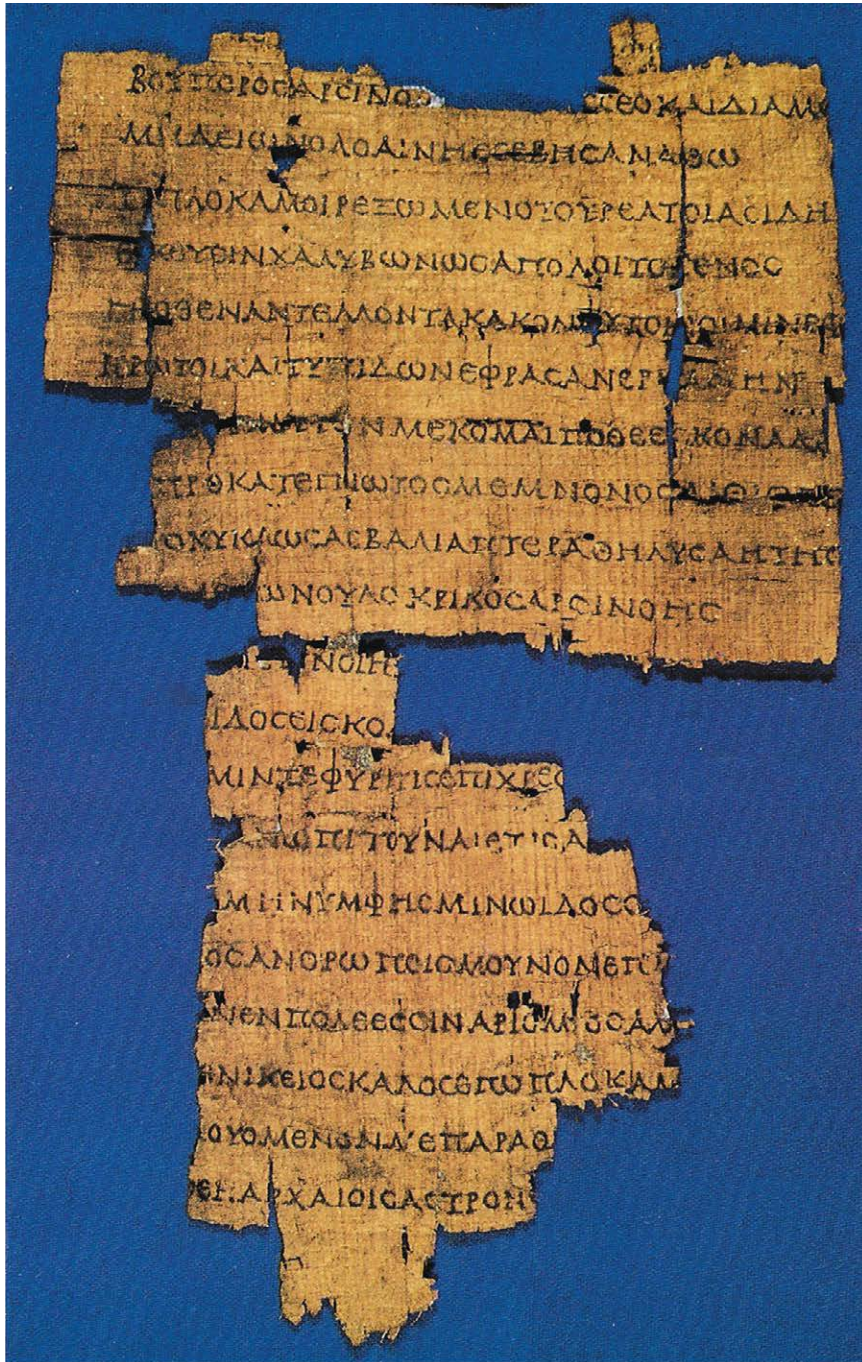 ΒΟΥΠΟΡΟCΑΡCΙΝΟ CΕΟΚΑΙΔΙΑΜ
ΜΗΔΕΙΩΝΟΛΟΑΙΝΗΕCΕΒΗCΑΝΑΘΩ
ΤΙΠΛΟΚΑΜΟΙΡΕΞΩΜΕΝΟΤΟΥΡΕΑΤΟΙΑCΙΔΗ
ΚΟΥCΙΝΧΑΛΥΒΩΝΩCΑΠΟΛΟΙΤΟΓΕΝΟC
ΓΗΟΘΕΝΑΝΤΕΛΛΟΝΤΑΚΑΚΟΝΦΥΤΟΝΟΙΜΙΝΕΦ
ΠΡΩΤΟΙΚΑΙΤΥΠΙΔΩΝΕΦΡΑCΑΝΕΡΓΑCΙΗΝ
ΤΟΝΜΕΚΟΜΑΙΠΟΘΕΕCΚΟΝΑΔ
ΠΡΟΚΑΤΕΓΝΩΤΟCΜΕΜΝΟΝΟCΑΙΘΙΟΠΟ
ΤΟΚΥΚΛΩCΑCΒΑΛΙΑΠΤΕΡΑΘΗΛΥCΑΗΤΗC
ΩΝΟΥΛΟΚΡΙΚΟCΑΡCΙΝΟΗC
ΝΟΙΗ
ΙΔΟCΕΙCΚΟ
ΜΙΝΖΕΦΥΡΙΤΙCΕΠΙΧΡΕΟ
ΑΝΩΠΙΤΟΥΝΑΙΕΤΙCΑ
ΜΗΝΥΜΦΗCΜΙΝΩΙΔΟCΟ
ΟCΑΝΘΡΩΠΟΙCΜΟΥΝΟΝΕΠΙ
ΑΝΕΝΠΟΛΕΕCCΙΝΑΡΙΘΜΙΟCΑΛΛ
ΕΝΙΚΕΙΟCΚΑΛΟCΕΓΩΠΛΟΚΑΜ
ΛΟΥΟΜΕΝΟΝΜΕΠΑΡΑΘ
ΕΝΑΡΧΑΙΟΙCΑCΤΡΟΝ